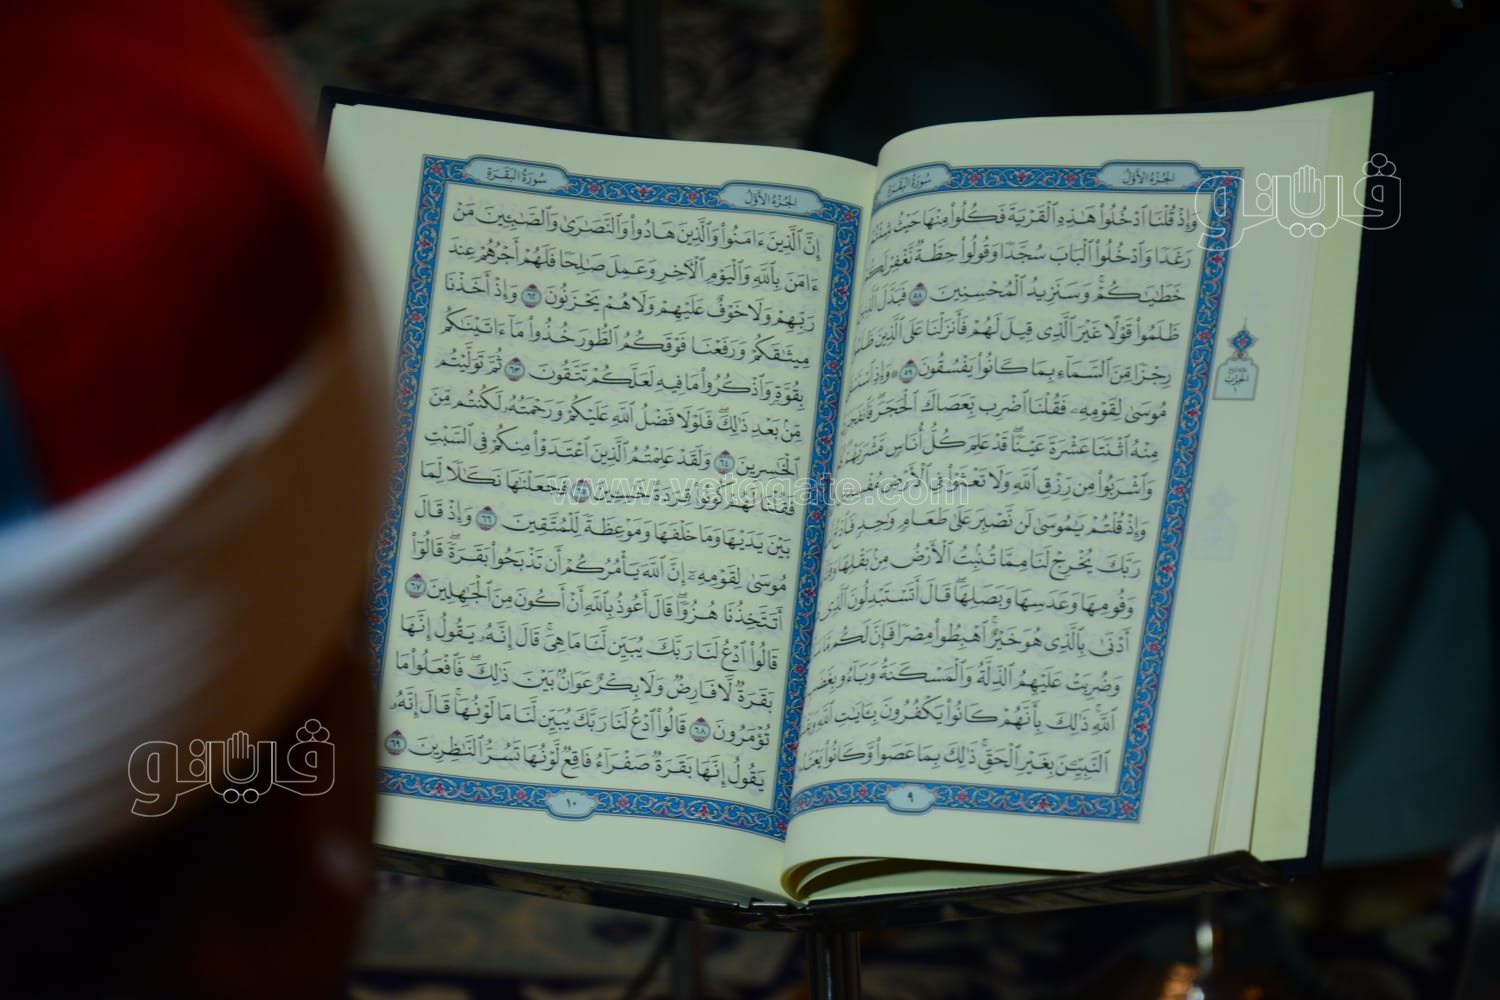 الجزء الأول
سورة البقرة
وَإِذْ قُلْنَا ٱدْخُلُوا۟ هَـٰذِهِ ٱلْقَرْيَةَ فَكُلُوا۟ مِنْهَا حَيْثُ شِئْتُمْ
رَغَدًا وَٱدْخُلُوا۟ ٱلْبَابَ سُجَّدًا وَقُولُوا۟ حِطَّةٌ نَّغْفِرْ لَكُمْ
خَطَـٰيَـٰكُمْ ۚ وَسَنَزِيدُ ٱلْمُحْسِنِينَ ٥٨ فَبَدَّلَ ٱلَّذِينَ
ظَلَمُوا۟ قَوْلًا غَيْرَ ٱلَّذِى قِيلَ لَهُمْ فَأَنزَلْنَا عَلَى ٱلَّذِينَ ظَلَمُوا۟
رِجْزًا مِّنَ ٱلسَّمَآءِ بِمَا كَانُوا۟ يَفْسُقُونَ ٥٩ ۞ وَإِذِ ٱسْتَسْقَىٰ
مُوسَىٰ لِقَوْمِهِۦ فَقُلْنَا ٱضْرِب بِّعَصَاكَ ٱلْحَجَرَ ۖ فَٱنفَجَرَتْ
مِنْهُ ٱثْنَتَا عَشْرَةَ عَيْنًا ۖ قَدْ عَلِمَ كُلُّ أُنَاسٍ مَّشْرَبَهُمْ ۖ
وَٱشْرَبُوا۟ مِن رِّزْقِ ٱللَّهِ وَلَا تَعْثَوْا۟ فِى ٱلْأَرْضِ مُفْسِدِينَ
وَإِذْ قُلْتُمْ يَـٰمُوسَىٰ لَن نَّصْبِرَ عَلَىٰ طَعَامٍ وَٰحِدٍ فَٱدْعُ
رَبَّكَ يُخْرِجْ لَنَا مِمَّا تُنۢبِتُ ٱلْأَرْضُ مِنۢ بَقْلِهَا
وَفُومِهَا وَعَدَسِهَا وَبَصَلِهَا ۖ قَالَ أَتَسْتَبْدِلُونَ ٱلَّذِى
أَدْنَىٰ بِٱلَّذِى هُوَ خَيْرٌ ۚ ٱهْبِطُوا۟ مِصْرًا فَإِنَّ لَكُم مَّا
وَضُرِبَتْ عَلَيْهِمُ ٱلذِّلَّةُ وَٱلْمَسْكَنَةُ وَبَآءُو بِغَضَبٍ
ٱللَّهِ ۗ ذَٰلِكَ بِأَنَّهُمْ كَانُوا۟ يَكْفُرُونَ بِـَٔايَـٰتِ ٱللَّهِ
ٱلنَّبِيِّـۧنَ بِغَيْرِ ٱلْحَقِّ ۗ ذَٰلِكَ بِمَا عَصَوا۟ وَّكَانُوا۟ يَعْتَدُونَ
٩
الحزب
الجزء الأول
سورة البقرة
إِنَّ ٱلَّذِينَ ءَامَنُوا۟ وَٱلَّذِينَ هَادُوا۟ وَٱلنَّصَـٰرَىٰ وَٱلصَّـٰبِـِٔينَ مَنْ
ءَامَنَ بِٱللَّهِ وَٱلْيَوْمِ ٱلْـَٔاخِرِ وَعَمِلَ صَـٰلِحًا فَلَهُمْ أَجْرُهُمْ عِندَ
رَبِّهِمْ وَلَا خَوْفٌ عَلَيْهِمْ وَلَا هُمْ يَحْزَنُونَ ٦٢ وَإِذْ أَخَذْنَا
مِيثَـٰقَكُمْ وَرَفَعْنَا فَوْقَكُمُ ٱلطُّورَ خُذُوا۟ مَآ ءَاتَيْنَـٰكُم
بِقُوَّةٍ وَٱذْكُرُوا۟ مَا فِيهِ لَعَلَّكُمْ تَتَّقُونَ ٦٣ ثُمَّ تَوَلَّيْتُم
مِّنۢ بَعْدِ ذَٰلِكَ ۖ فَلَوْلَا فَضْلُ ٱللَّهِ عَلَيْكُمْ وَرَحْمَتُهُۥ لَكُنتُم مِّنَ
ٱلْخَـٰسِرِينَ ٦٤ وَلَقَدْ عَلِمْتُمُ ٱلَّذِينَ ٱعْتَدَوْا۟ مِنكُمْ فِى ٱلسَّبْتِ
فَقُلْنَا لَهُمْ كُونُوا۟ قِرَدَةً خَـٰسِـِٔينَ ٦٥ فَجَعَلْنَـٰهَا نَكَـٰلًا لِّمَا
بَيْنَ يَدَيْهَا وَمَا خَلْفَهَا وَمَوْعِظَةً لِّلْمُتَّقِينَ ٦٦ وَإِذْ قَالَ
مُوسَىٰ لِقَوْمِهِۦٓ إِنَّ ٱللَّهَ يَأْمُرُكُمْ أَن تَذْبَحُوا۟ بَقَرَةً ۖ قَالُوٓا۟
أَتَتَّخِذُنَا هُزُوًا ۖ قَالَ أَعُوذُ بِٱللَّهِ أَنْ أَكُونَ مِنَ ٱلْجَـٰهِلِينَ ٦٧
قَالُوا۟ ٱدْعُ لَنَا رَبَّكَ يُبَيِّن لَّنَا مَا هِىَ ۚ قَالَ إِنَّهُۥ يَقُولُ إِنَّهَا
بَقَرَةٌ لَّا فَارِضٌ وَلَا بِكْرٌ عَوَانٌۢ بَيْنَ ذَٰلِكَ ۖ فَٱفْعَلُوا۟ مَا
تُؤْمَرُونَ ٦٨ قَالُوا۟ ٱدْعُ لَنَا رَبَّكَ يُبَيِّن لَّنَا مَا لَوْنُهَا ۚ قَالَ إِنَّهُۥ
يَقُولُ إِنَّهَا بَقَرَةٌ صَفْرَآءُ فَاقِعٌ لَّوْنُهَا تَسُرُّ ٱلنَّـٰظِرِينَ ٦٩
١٠
فيتو
www.vetogate.com
فيتو